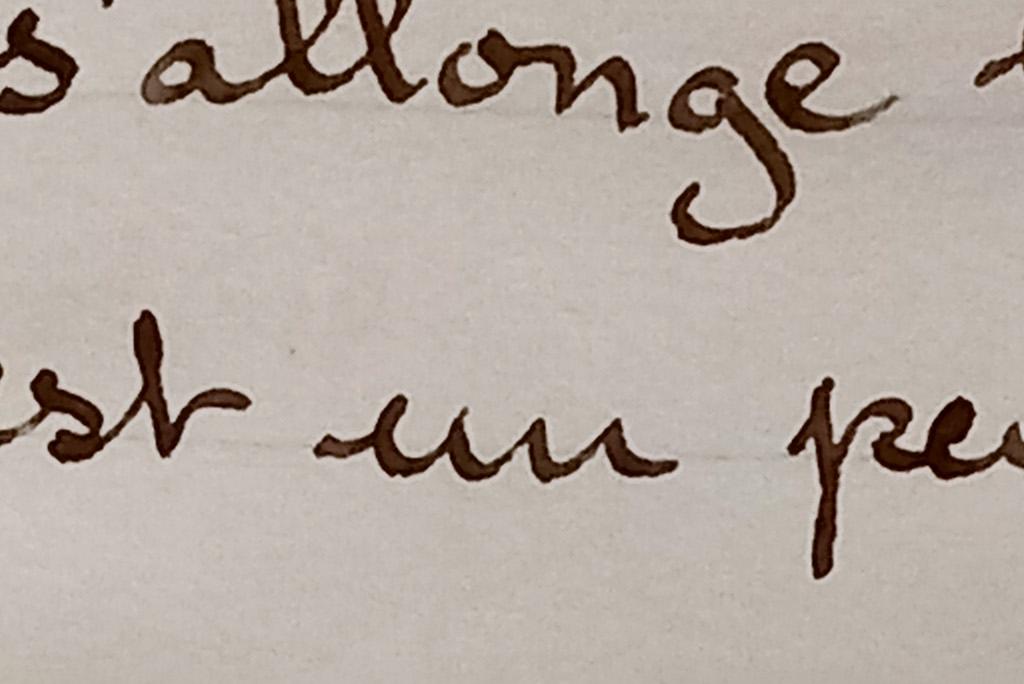 s'allonge
est un peu